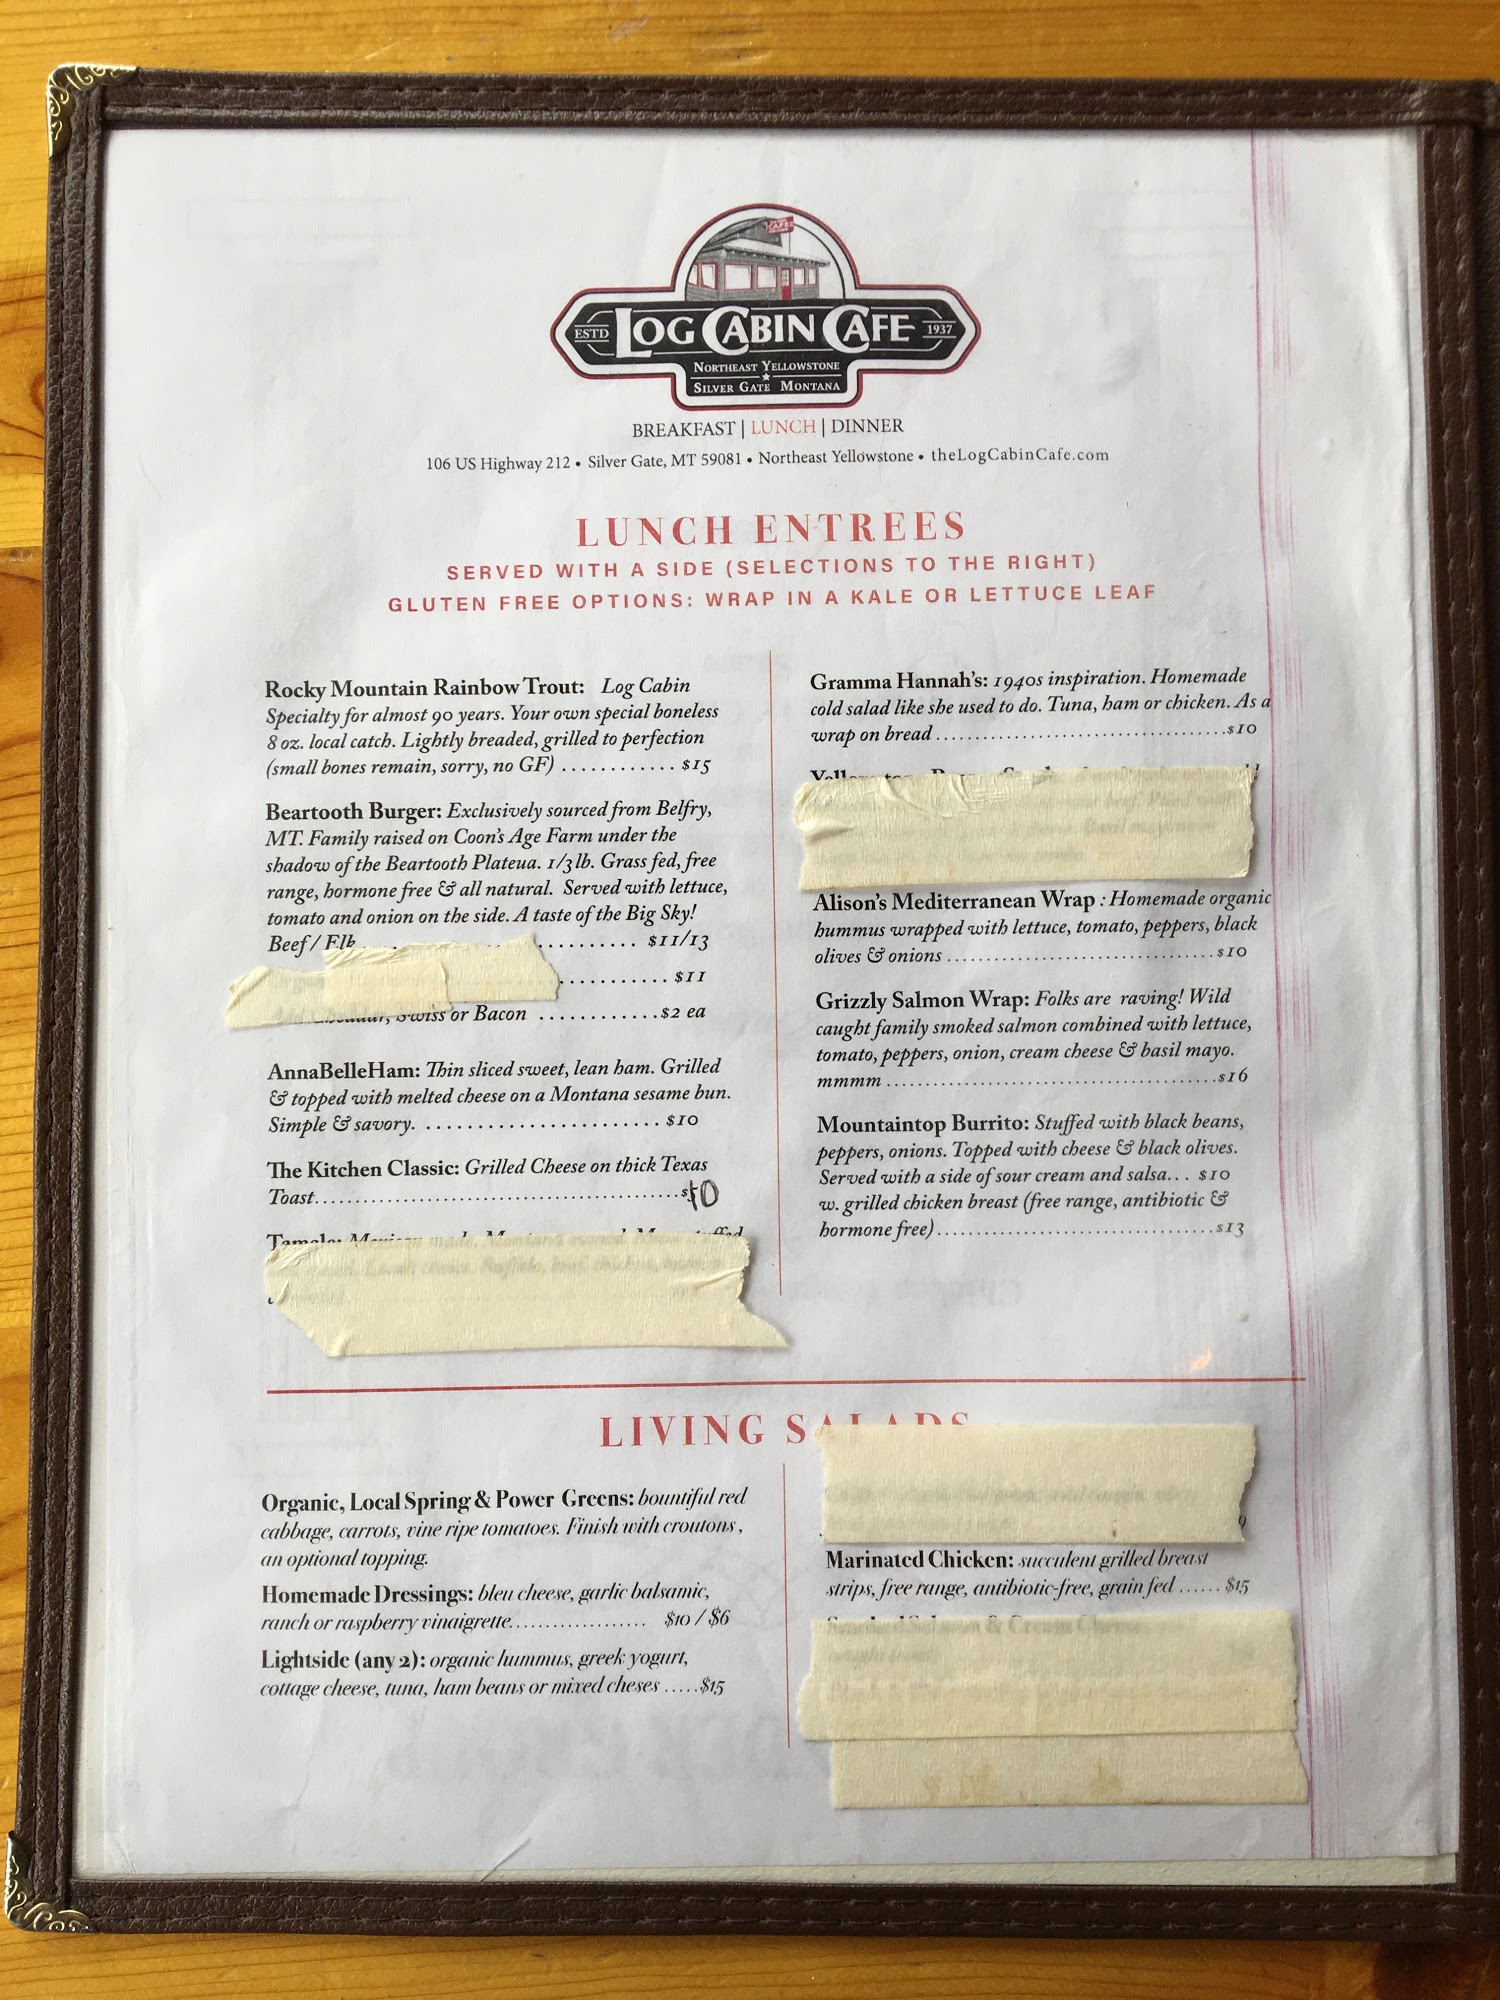 CAFE
ESTD LOG CABIN CAFE 1937
NORTHEAST YELLOWSTONE
SILVER GATE MONTANA
BREAKFAST | LUNCH | DINNER
106 US Highway 212 • Silver Gate, MT 59081 • Northeast Yellowstone • theLogCabinCafe.com
LUNCH ENTREES
SERVED WITH A SIDE (SELECTIONS TO THE RIGHT)
GLUTEN FREE OPTIONS: WRAP IN A KALE OR LETTUCE LEAF
Rocky Mountain Rainbow Trout: Log Cabin
Specialty for almost 90 years. Your own special boneless
8 oz. local catch. Lightly breaded, grilled to perfection
(small bones remain, sorry, no GF) ............ $15
Beartooth Burger: Exclusively sourced from Belfry,
MT. Family raised on Coon's Age Farm under the
shadow of the Beartooth Plateua. 1/3 lb. Grass fed, free
range, hormone free & all natural. Served with lettuce,
tomato and onion on the side. A taste of the Big Sky!
Beef / Elk ........... $11/13
........... $11
Add Cheddar, Swiss or Bacon ............$2 ea
AnnaBelleHam: Thin sliced sweet, lean ham. Grilled
& topped with melted cheese on a Montana sesame bun.
Simple & savory. ........................ $10
The Kitchen Classic: Grilled Cheese on thick Texas
Toast.....................................................$10
Tamale: Mexican made,
Gramma Hannah's: 1940s inspiration. Homemade
cold salad like she used to do. Tuna, ham or chicken. As a
wrap on bread ..........................................$10
Alison's Mediterranean Wrap : Homemade organic
hummus wrapped with lettuce, tomato, peppers, black
olives & onions ......................................$10
Grizzly Salmon Wrap: Folks are raving! Wild
caught family smoked salmon combined with lettuce,
tomato, peppers, onion, cream cheese & basil mayo.
mmmm ................................................$16
Mountaintop Burrito: Stuffed with black beans,
peppers, onions. Topped with cheese & black olives.
Served with a side of sour cream and salsa... $10
w. grilled chicken breast (free range, antibiotic &
hormone free)........................................$13
LIVING SALADS
Organic, Local Spring & Power Greens: bountiful red
cabbage, carrots, vine ripe tomatoes. Finish with croutons,
an optional topping.
Homemade Dressings: bleu cheese, garlic balsamic,
ranch or raspberry vinaigrette.................... $10 / $6
Lightside (any 2): organic hummus, greek yogurt,
cottage cheese, tuna, ham beans or mixed cheses .....$15
9
Marinated Chicken: succulent grilled breast
strips, free range, antibiotic-free, grain fed ...... $15
Smoked Salmon & Cream Cheese